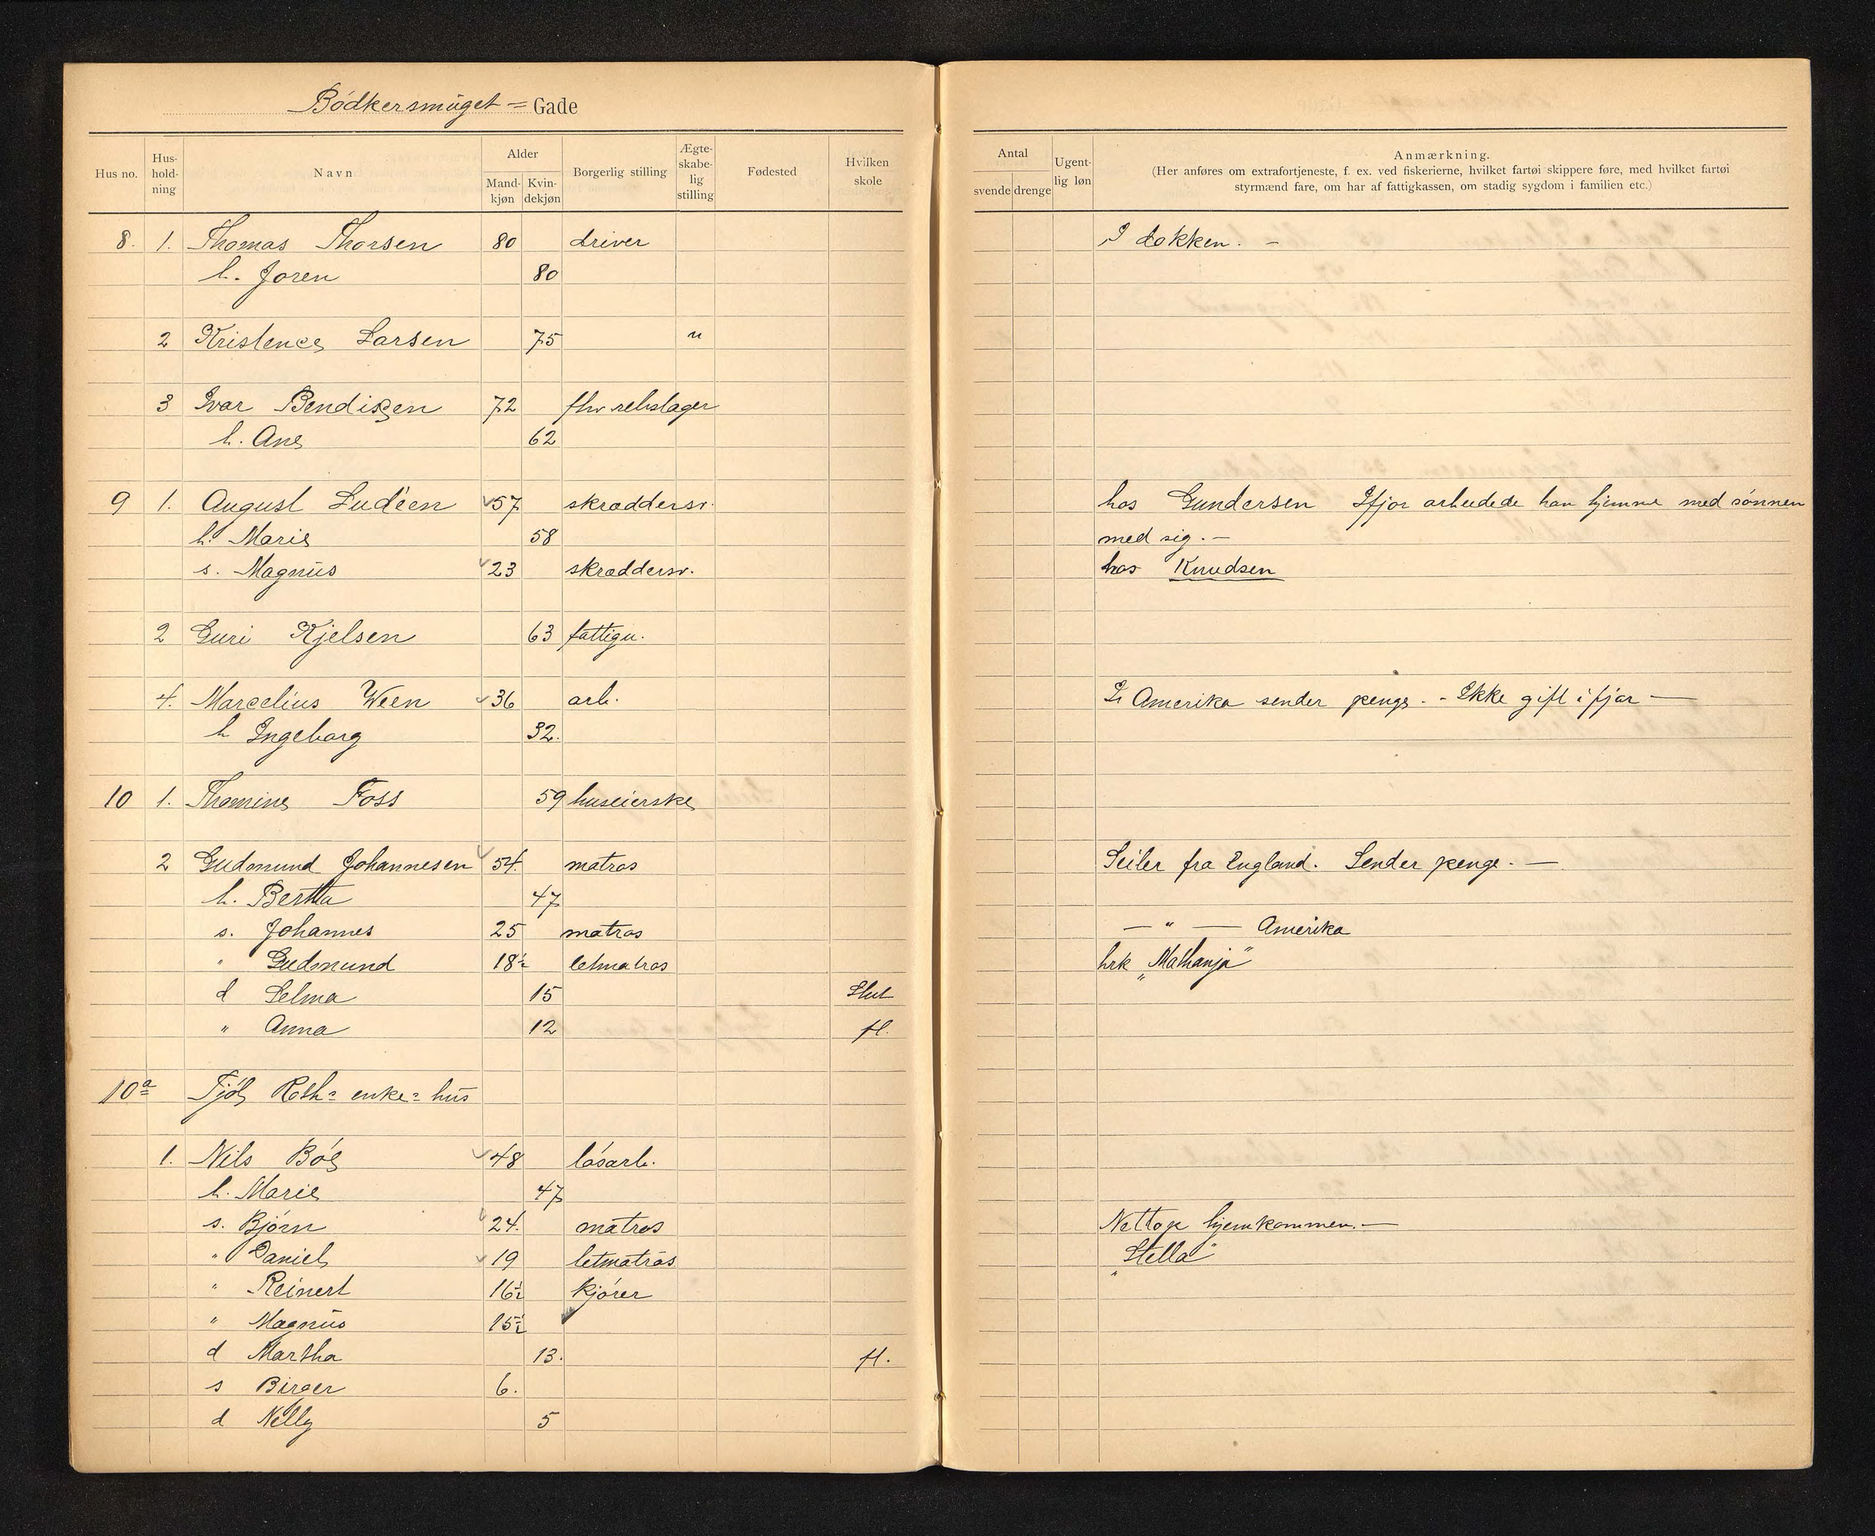 Bødkersmuget = Gade
Hus no. Hus-hold-ning Navn Alder Mand-kjøn Kvin-dekjøn Borgerlig stilling Ægte-skabe-lig stilling Fødested Hvilken skole
Antal svende drenge Ugent-lig løn Anmærkning.
(Her anføres om extrafortjeneste, f. ex. ved fiskerierne, hvilket fartøi skippere føre, med hvilket fartøi
styrmænd fare, om har af fattigkassen, om stadig sygdom i familien etc.)
8. 1. Thomas Thorsen 80 driver I dokken. -
h. Joren 80
2 Kristence Larsen 75 u
3 Ivar Bendixen 72 fhv rebslager
h. Ane 62
9 1. August Ludéen 57 skræddersv. hos Gundersen Ifjor arbeidede han hjemme med sønnen
h. Marie 58 med sig. -
s. Magnus 23 skræddersv. hos Knudsen
2 Guri Kjelsen 63 fattigu.
4. Marcelius Ween 36 arb. I Amerika sender penge. - Ikke gift i fjor -
h Ingeborg 32.
10 1. Thomine Foss 59 huseierske
2 Gudmund Johannesen 54. matros Seiler fra England. Sender penge. -
h. Bertha 47
s. Johannes 25 matros - " - Amerika
" Gudmund 18½ letmatros brk "Mathanja"
d Selma 15 Slut
" Anna 12 fl.
10a Tjøs Roth= enke= hus
1. Nils Bøe 48 løsarb.
h. Marie 47
s. Bjørn 24. matros Nettop hjemkommen. -
" Daniel 19 letmatros "Stella"
" Reinert 16½ kjører
" Magnus 15½
d Martha 13. fl.
s Birger 6.
d Nelly 5